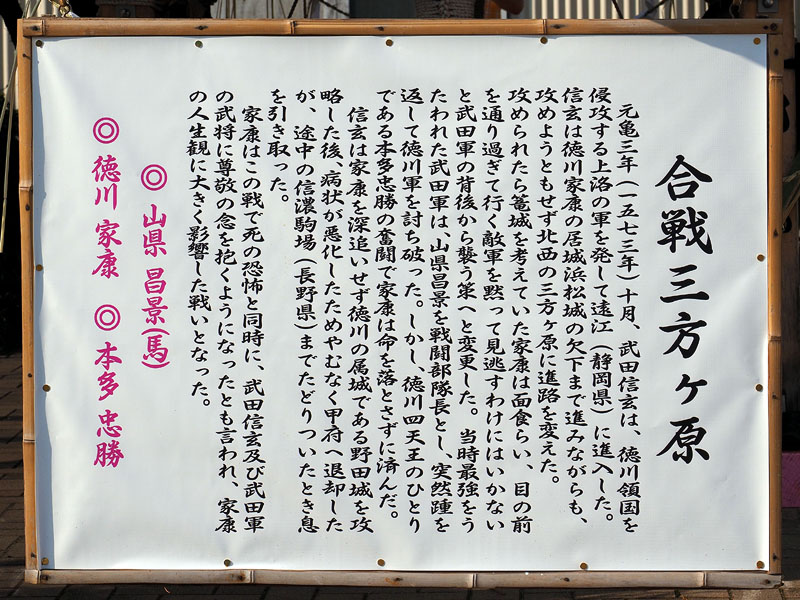 合戦三方ヶ原
元亀三年(一五七三年)十月、武田信玄は、徳川領国を
侵攻する上洛の軍を発して遠江(静岡県)に進入した。
信玄は徳川家康の居城浜松城の欠下まで進みながらも、
攻めようともせず北西の三方ヶ原に進路を変えた。
攻められたら篭城を考えていた家康は面食らい、目の前
を通り過ぎて行く敵軍を黙って見逃すわけにはいかない
と武田軍の背後から襲う策へと変更した。当時最強をう
たわれた武田軍は、山県昌景を戦闘部隊長とし、突然踵を
返して徳川軍を討ち破った。しかし、徳川四天王のひとり
である本多忠勝の奮闘で家康は命を落とさずに済んだ。
信玄は家康を深追いせず徳川の属城である野田城を攻
略した後、病状が悪化したためやむなく甲府へ退却した
が、途中の信濃駒場(長野県)までたどりついたとき息
を引き取った。
家康はこの戦で死の恐怖と同時に、武田信玄及び武田軍
の武将に尊敬の念を抱くようになったとも言われ、家康
の人生観に大きく影響した戦いとなった。
◎ 山県 昌景(馬)
◎ 徳川 家康 ◎ 本多 忠勝